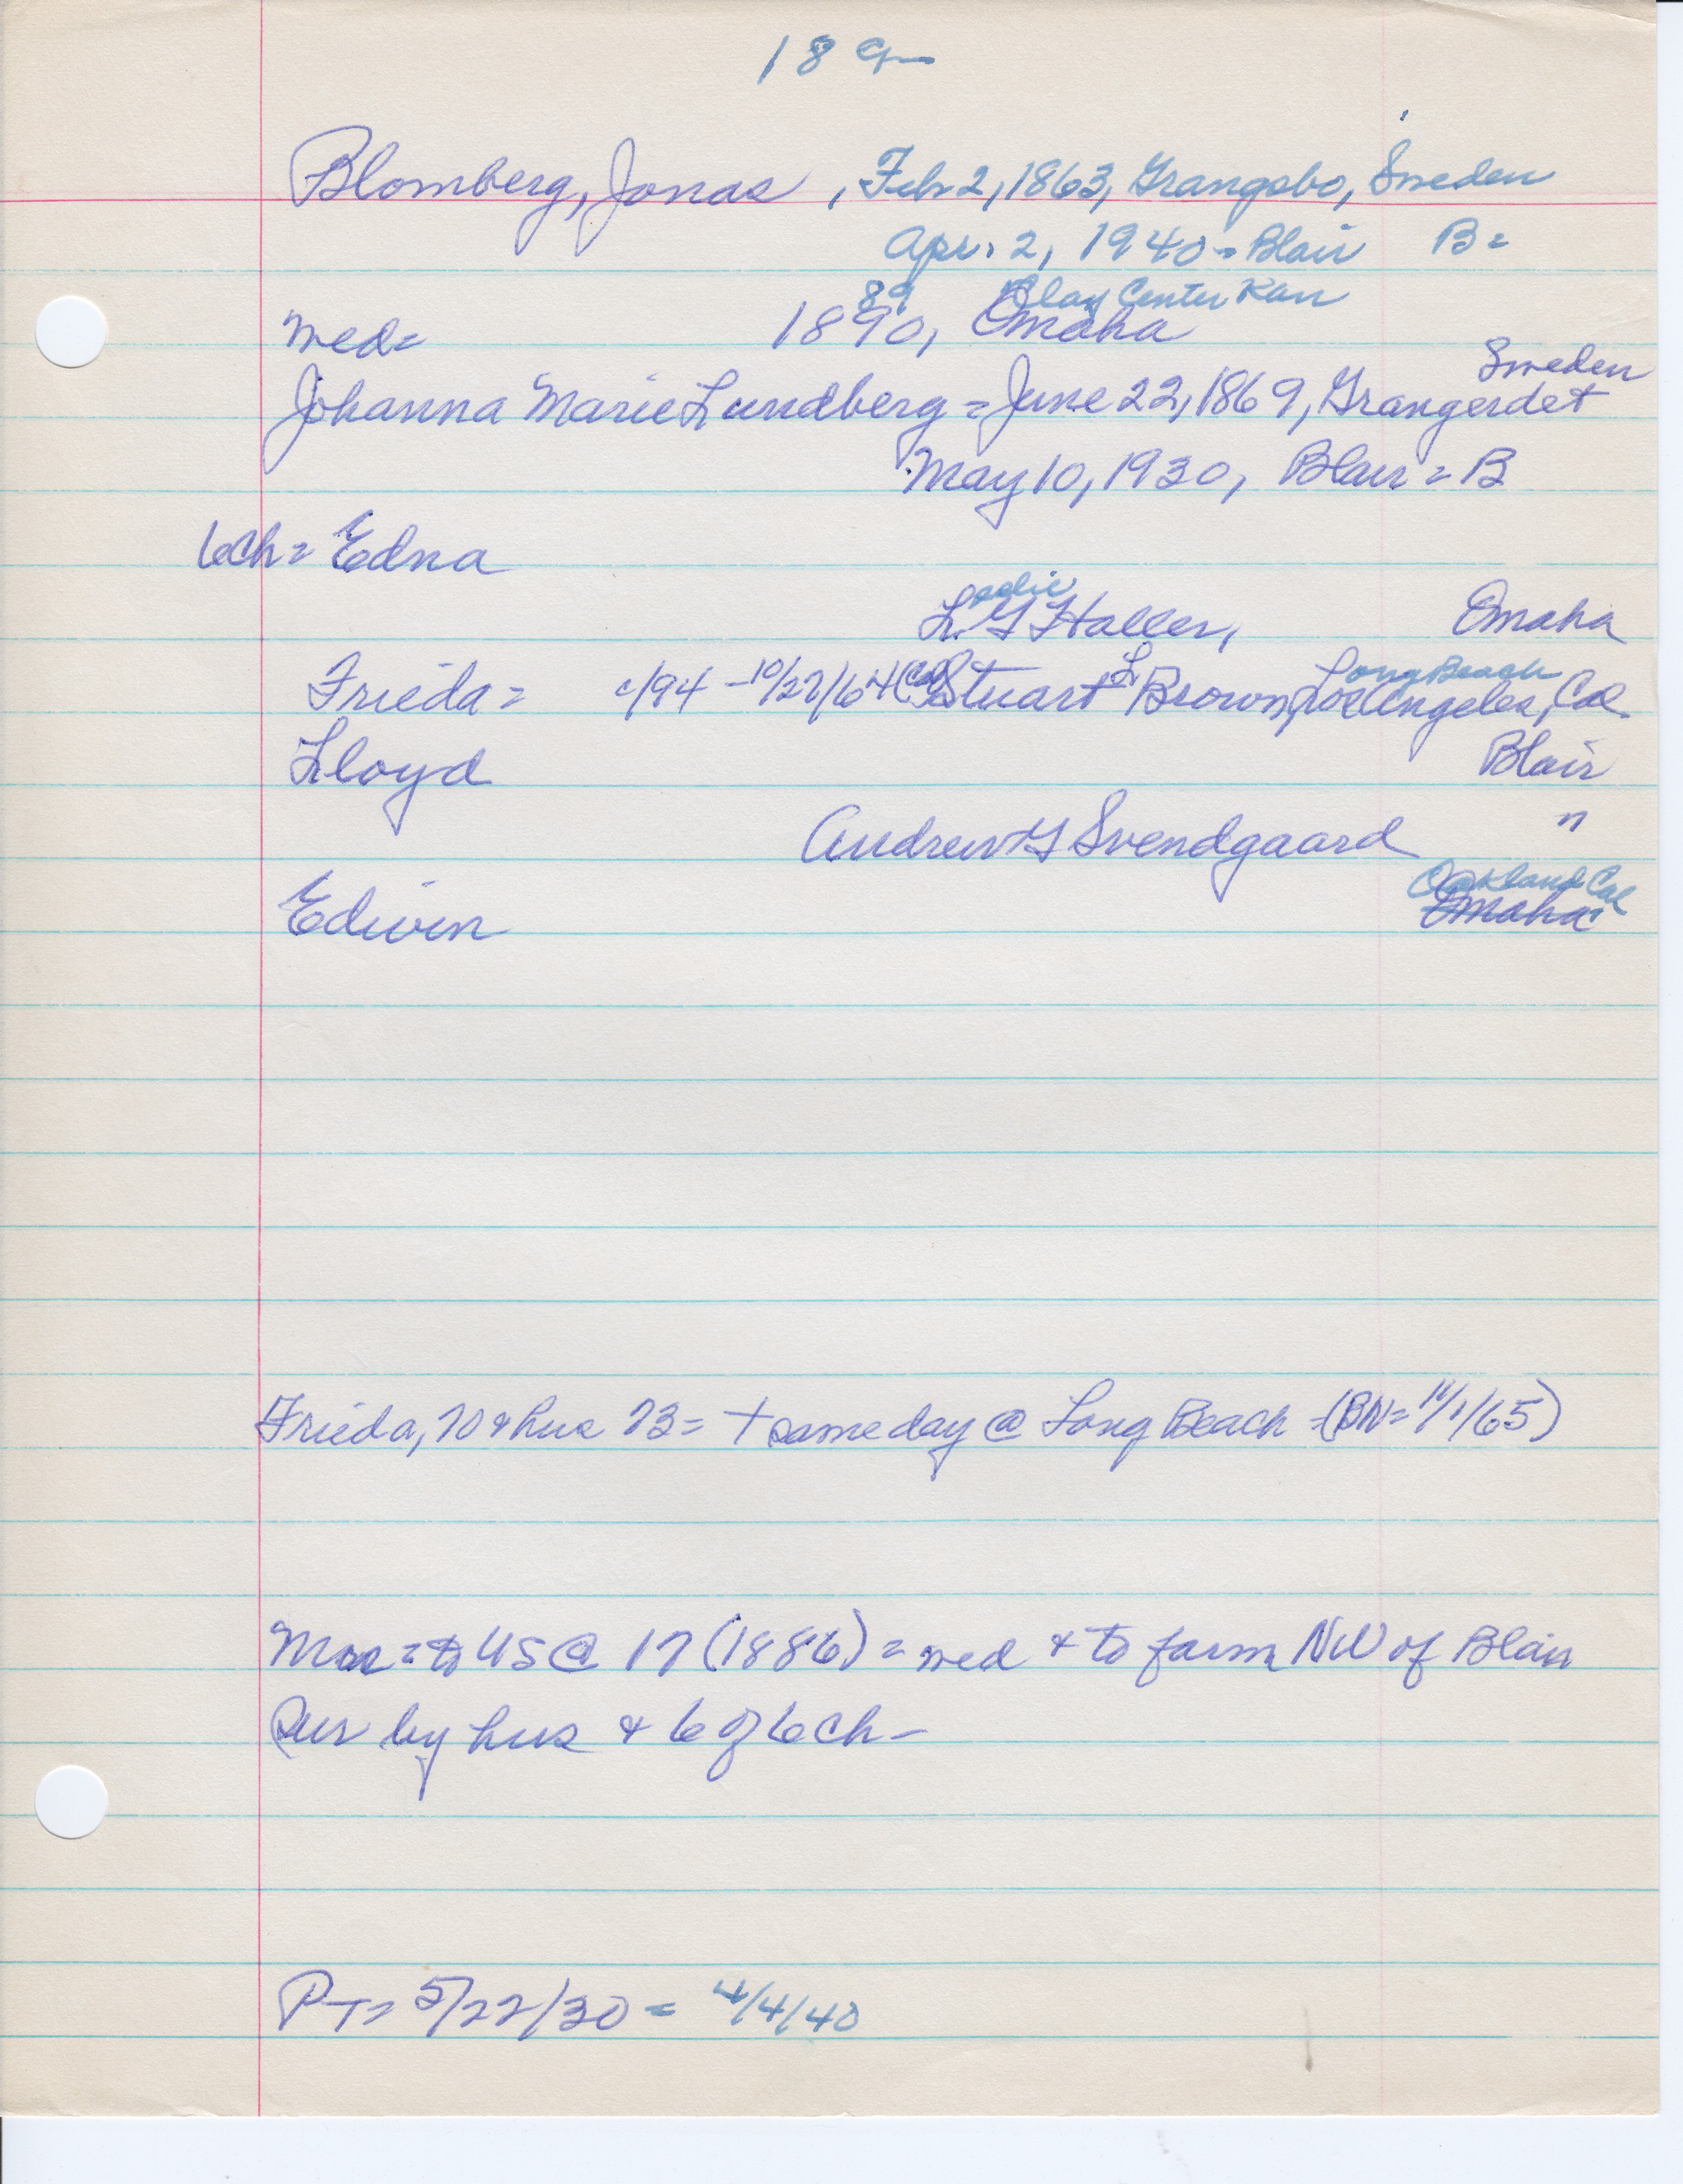 18 gr
Blomberg, Jonas , Feb 2, 1863, Grangsbo, Sweden
Apr. 2, 1940 = Blair B =
89 Clay Center Kan
Med = 1890, Omaha
Sweden
Johanna Marie Lundberg = June 22, 1869, Grangerdet
May 10, 1930, Blair = B
6ch = Edna
Leslie
L. G Haller, Omaha
Long Beach
Frieda = c/94 - 10/27/64 (Cal) Stuart L Brown, Los Angeles, Cal.
Lloyd Blair
Andrew G Svendgaard "
Oakland Cal
Edwin Omaha
Frieda, 70 & hus 73 = + same day @ Long Beach - (BN = 11/1/65)
Mrs = to US @ 17 (1886) = med & to farm NW of Blair
Sur by hus & 6 of 6 ch -
PT = 5/22/30 = 4/4/40